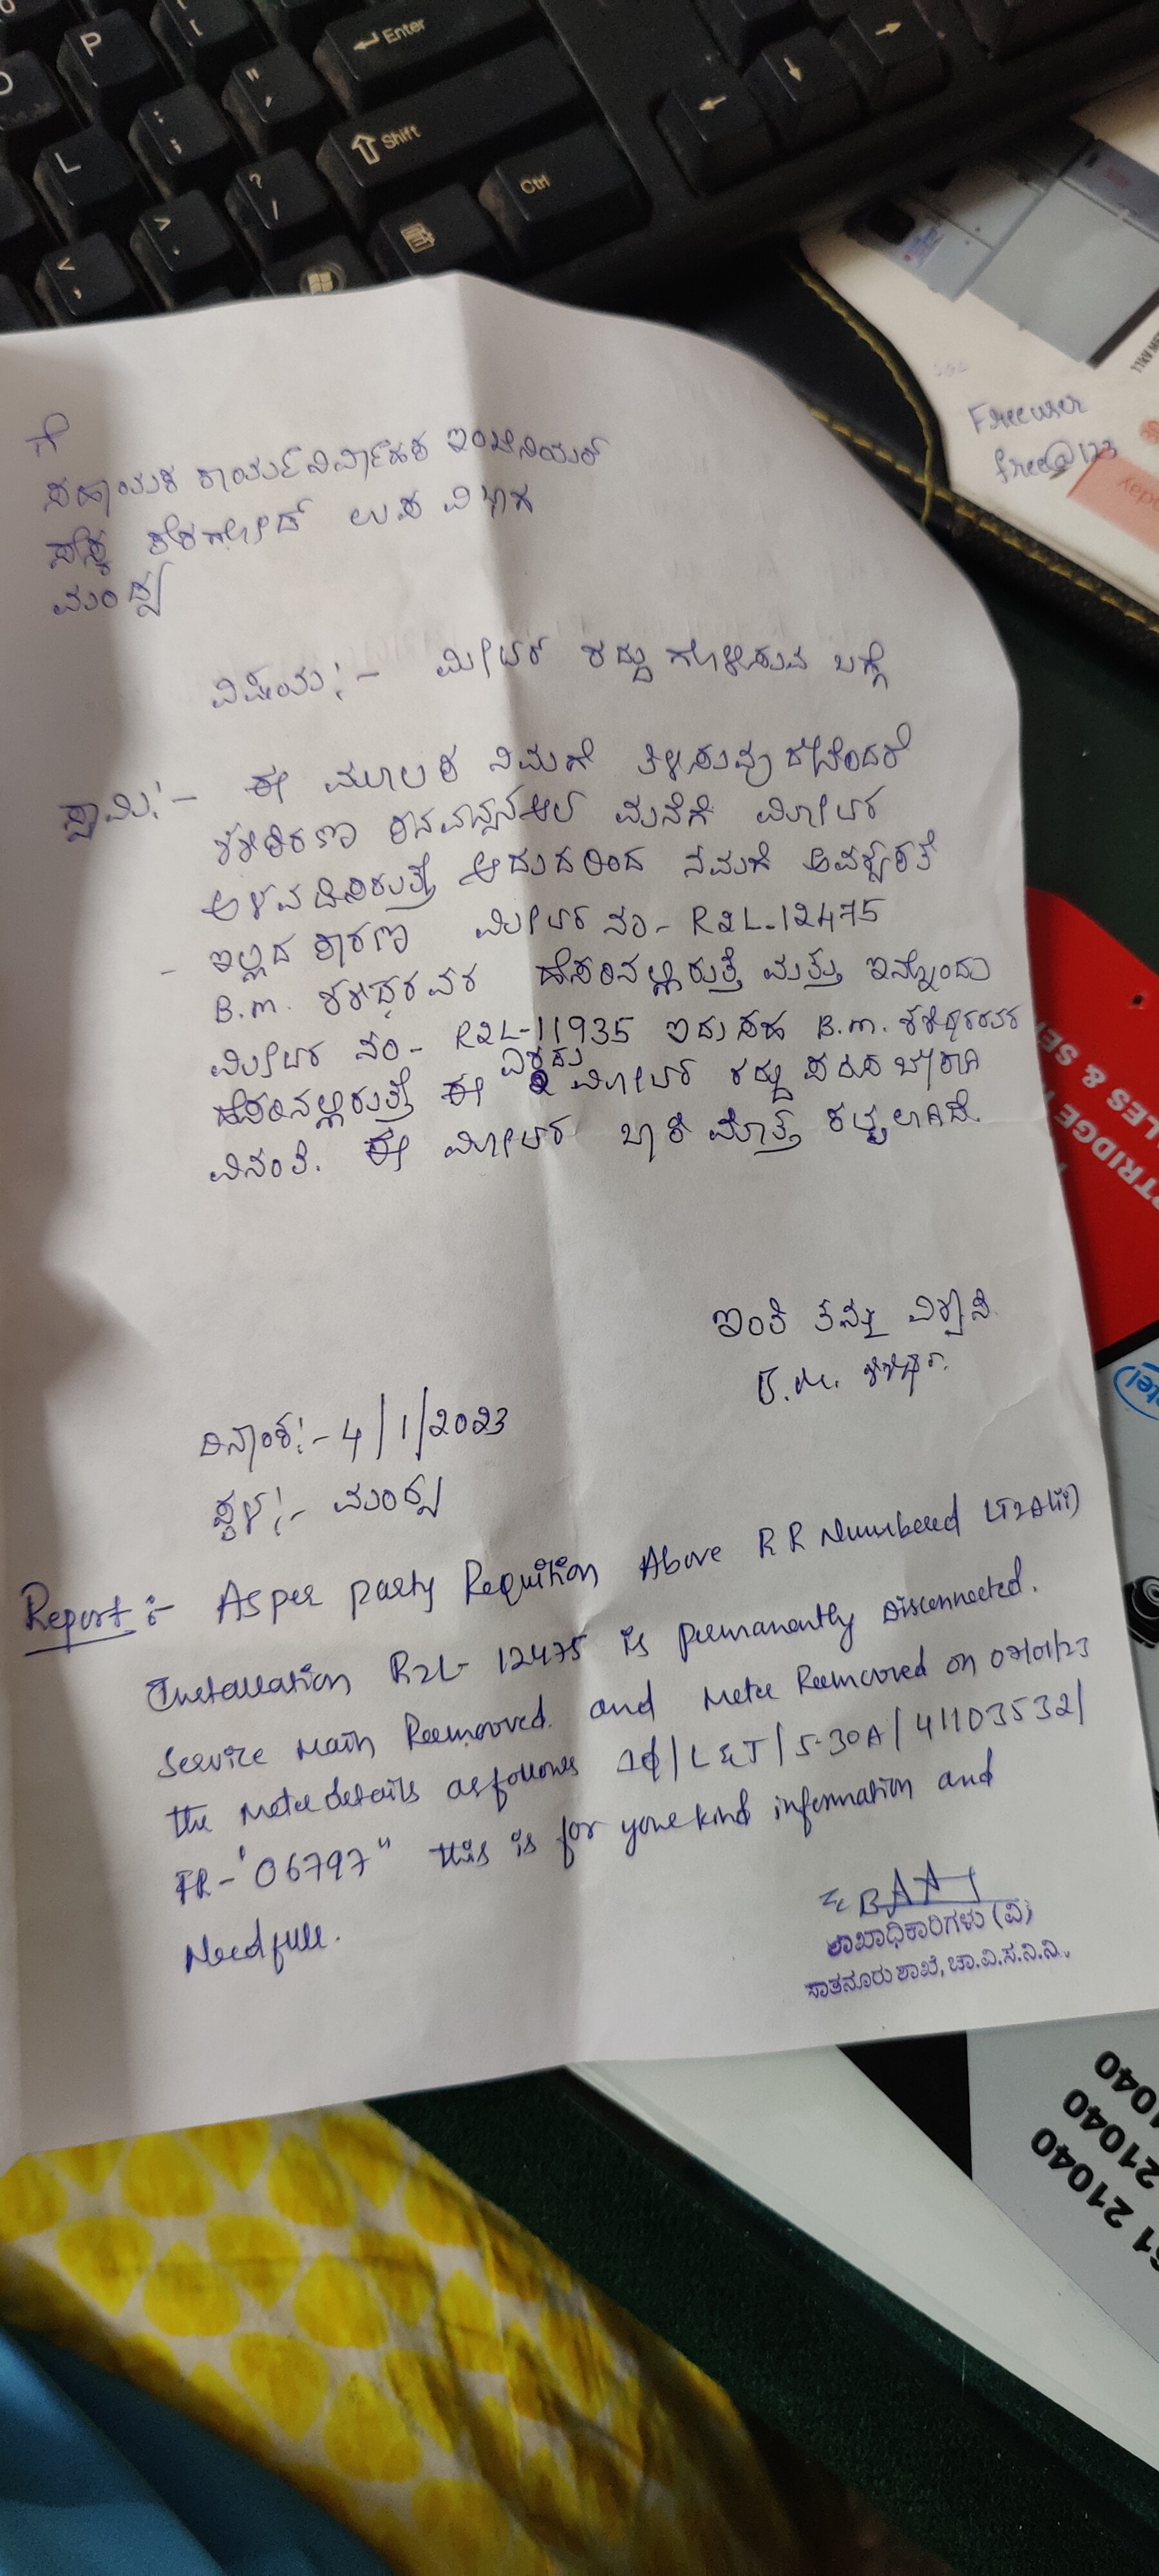 P
L
Enter
Shift
Ctrl
Freeuser
free@123
ಗೆ
ಸಹಾಯಕ ಕಾರ್ಯನಿರ್ವಾಹಕ ಇಂಜಿನಿಯರ್
ಕೆರಗೋಡ್ ಉಪ ವಿಭಾಗ
ಮಂಡ್ಯ
ವಿಷಯ:- ಮೀಟರ್ ರದ್ದು ಗೊಳಿಸುವ ಬಗ್ಗೆ
ಸ್ವಾಮಿ:- ಈ ಮೂಲಕ ನಿಮಗೆ ತಿಳಿಸುವುದೇನೆಂದರೆ
ಮನೆಗೆ ಮೀಟರ್
ಅಳವಡಿಸಿರುತ್ತೆ ಆದುದರಿಂದ ನಮಗೆ ಅವಶ್ಯಕತೆ
ಇಲ್ಲದ ಕಾರಣ ಮೀಟರ್ ನಂ- R2L-12475
B.m. ಶಶಿಧರವರ ಹೆಸರಿನಲ್ಲಿರುತ್ತೆ ಮತ್ತು ಇನ್ನೊಂದು
ಮೀಟರ್ ನಂ- R2L-11935 ಇದು ಸಹ B.m. ಶಶಿಧರರವರ
ಎರಡು
ಹೆಸರಿನಲ್ಲಿರುತ್ತೆ ಈ 2 ಮೀಟರ್ ರದ್ದು
ವಿನಂತಿ. ಈ ಮೀಟರ್ ಬಾಕಿ ಮೊತ್ತ ಕಟ್ಟಲಾಗಿದೆ.
ಇಂತಿ ತಮ್ಮ ವಿಶ್ವಾಸಿ
B.M. ಶಶಿಧರ.
ದಿನಾಂಕ:- 4/1/2023
ಸ್ಥಳ:- ಮಂಡ್ಯ
Report:- As per party Requition Above RR Numbered LT2A(ii)
Installation R2L- 12475 is permanantly Disconnected.
Service Main Reemooved. and Meter Reemooved on 07/01/23
the Meter details as follows 1ɸ/L&T/5-30A/41103532/
FR-'06797" this is for your kind information and
Needfull.
ಶಾಖಾಧಿಕಾರಿಗಳು (ವಿ)
ಸಾತನೂರು ಶಾಖೆ, ಚಾ.ವಿ.ಸ.ನಿ.ನಿ.,
TRIDGE
LES & SE
intel
21040
21040